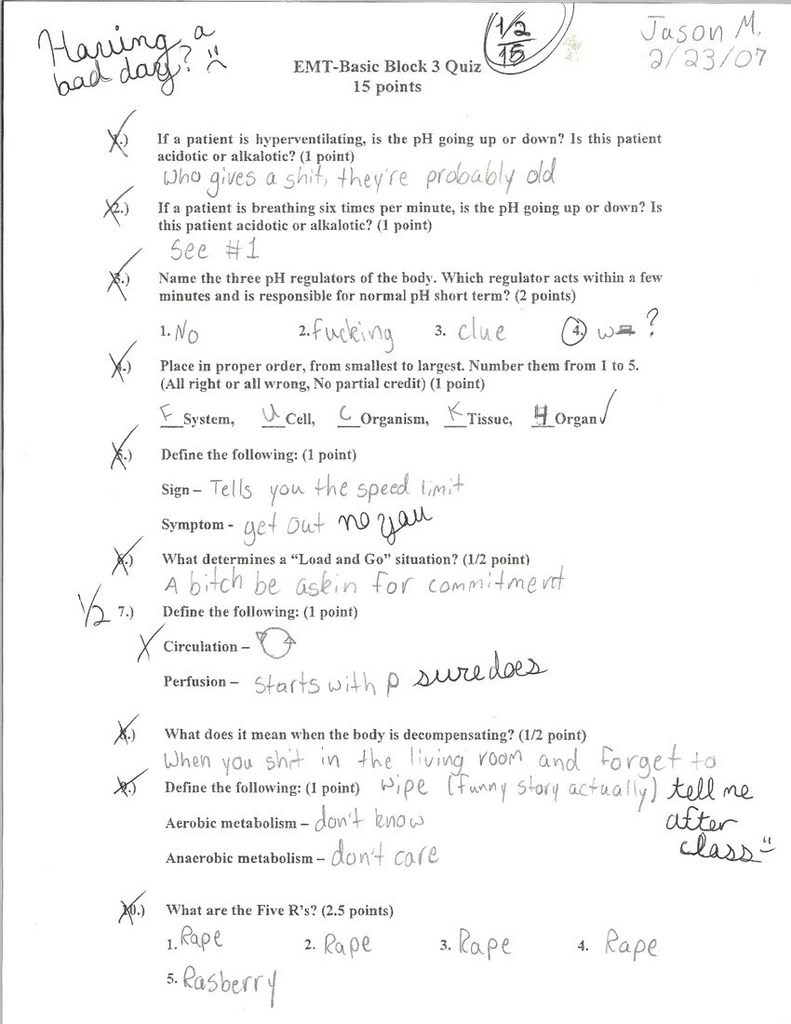 Having a
bad day? :(
1/2
15
Jason M.
2/23/07
EMT-Basic Block 3 Quiz
15 points
1.) If a patient is hyperventilating, is the pH going up or down? Is this patient
acidotic or alkalotic? (1 point)
Who gives a shit, they're probably old
2.) If a patient is breathing six times per minute, is the pH going up or down? Is
this patient acidotic or alkalotic? (1 point)
See #1
3.) Name the three pH regulators of the body. Which regulator acts within a few
minutes and is responsible for normal pH short term? (2 points)
1. No 2. fucking 3. clue 4. ?
4.) Place in proper order, from smallest to largest. Number them from 1 to 5.
(All right or all wrong, No partial credit) (1 point)
F System, U Cell, C Organism, K Tissue, 4 Organ
5.) Define the following: (1 point)
Sign – Tells you the speed limit
Symptom - get out no you
6.) What determines a “Load and Go” situation? (1/2 point)
A bitch be askin for commitment
1/2 7.) Define the following: (1 point)
Circulation –
Perfusion – starts with p sure does
8.) What does it mean when the body is decompensating? (1/2 point)
When you shit in the living room and forget to
9.) Define the following: (1 point) wipe (funny story actually) tell me
Aerobic metabolism – don't know after
Anaerobic metabolism – don't care class :)
10.) What are the Five R's? (2.5 points)
1. Rape 2. Rape 3. Rape 4. Rape
5. Rasberry